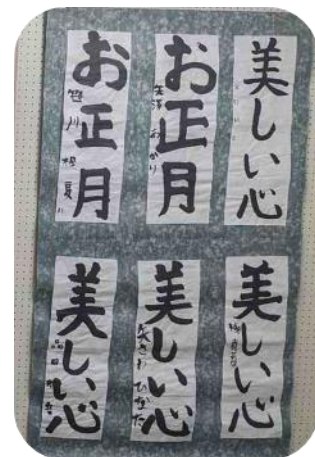 美しい心
お正月
お正月
美しい心
美しい心
美しい心